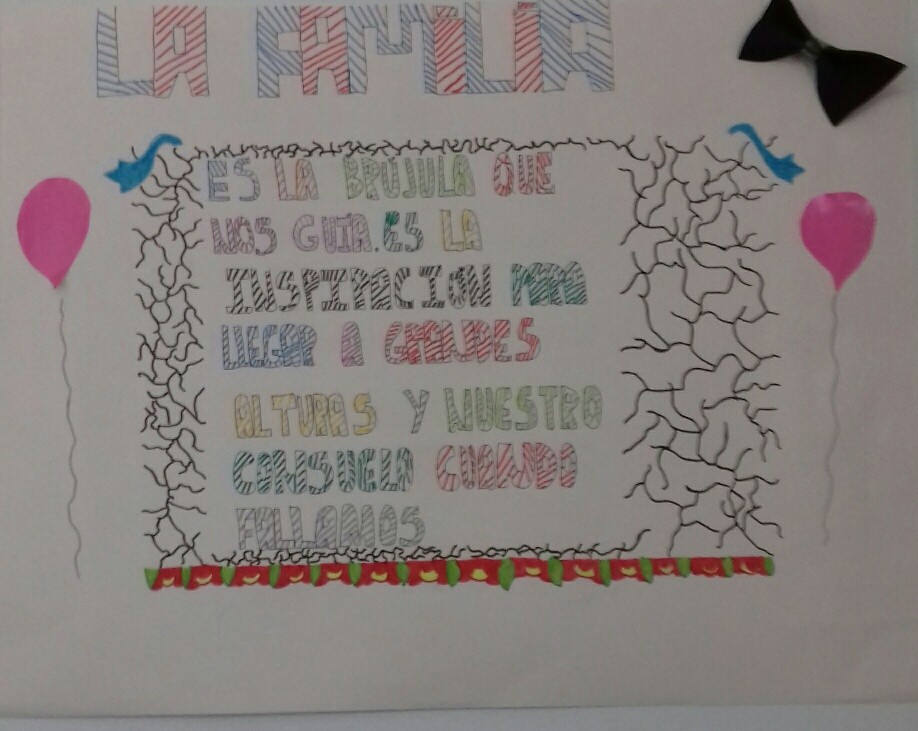 LA FAMILIA
ES LA BRÚJULA QUE
NOS GUIA. ES LA
INSPIRACIÓN PARA
LLEGAR A GRANDES
ALTURAS Y NUESTRO
CONSUELO CUANDO
FALLAMOS